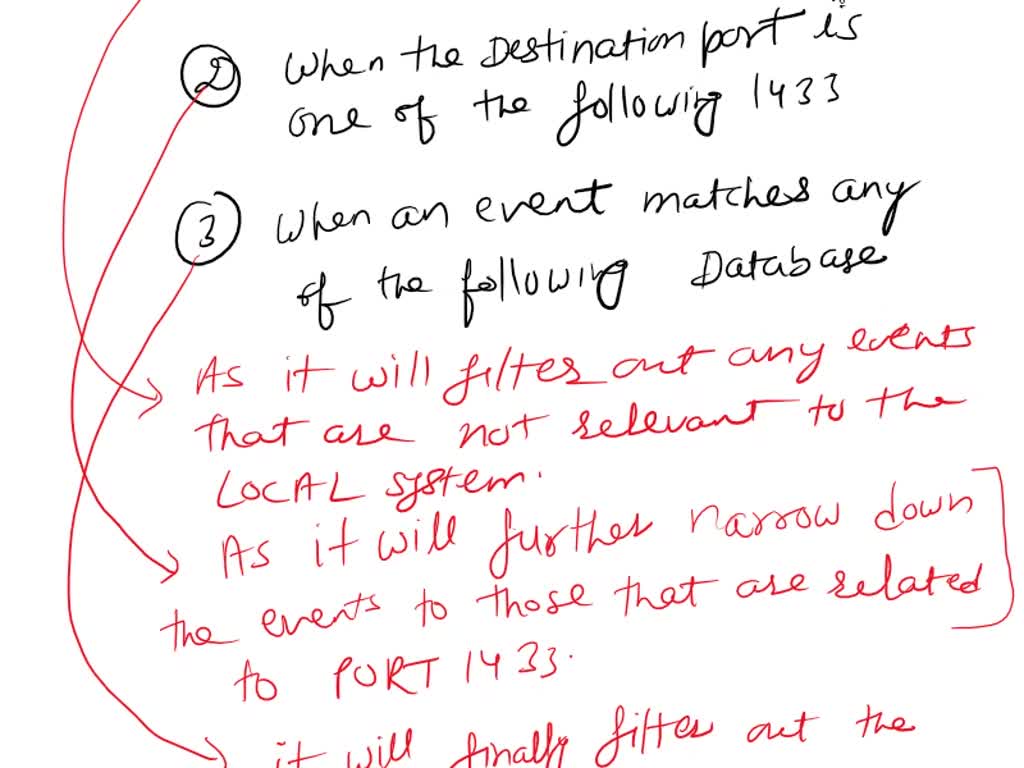 ② When the Destination port is
one of the following 1433
③ When an event matches any
of the following Database
As it will filter out any events
that are not relevant to the
LOCAL system.
As it will further narrow down
the events to those that are related
to PORT 1433.
it will finally filter out the